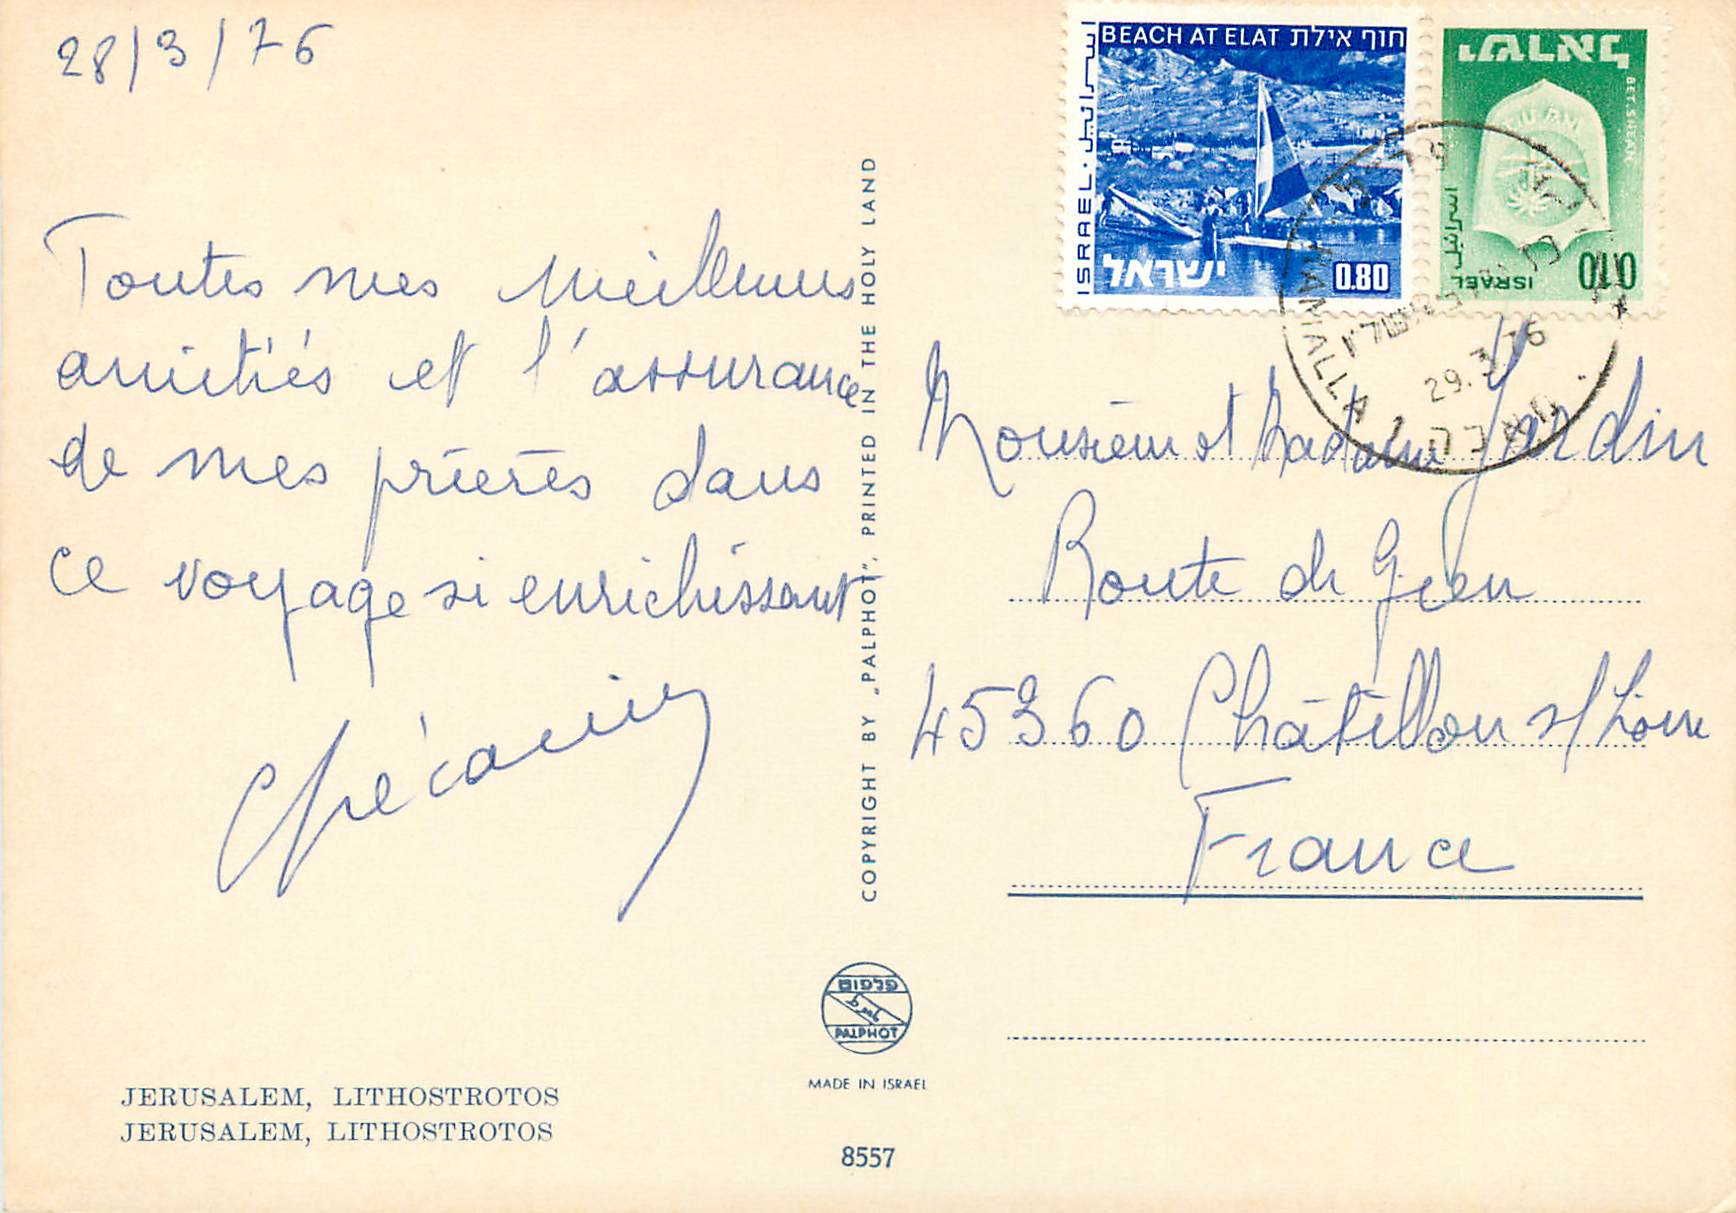 28/3/76
Toutes mes meilleures
amitiés et l'assurance
de mes prières dans
ce voyage si enrichissant
JERUSALEM, LITHOSTROTOS
JERUSALEM, LITHOSTROTOS
COPYRIGHT BY „PALPHOT“, PRINTED IN THE HOLY LAND
פלפוט
PALPHOT
MADE IN ISRAEL
8557
BEACH AT ELAT חוף אילת
ISRAEL · اسرائيل
ישראל 0.80
ישראל
BET SHEAN
اسرائيل
ISRAEL 0.10
RAMALLA
29.3.76
Monsieur et Madame Jardin
Route de Gien
45360 Châtillon s/Loire
France